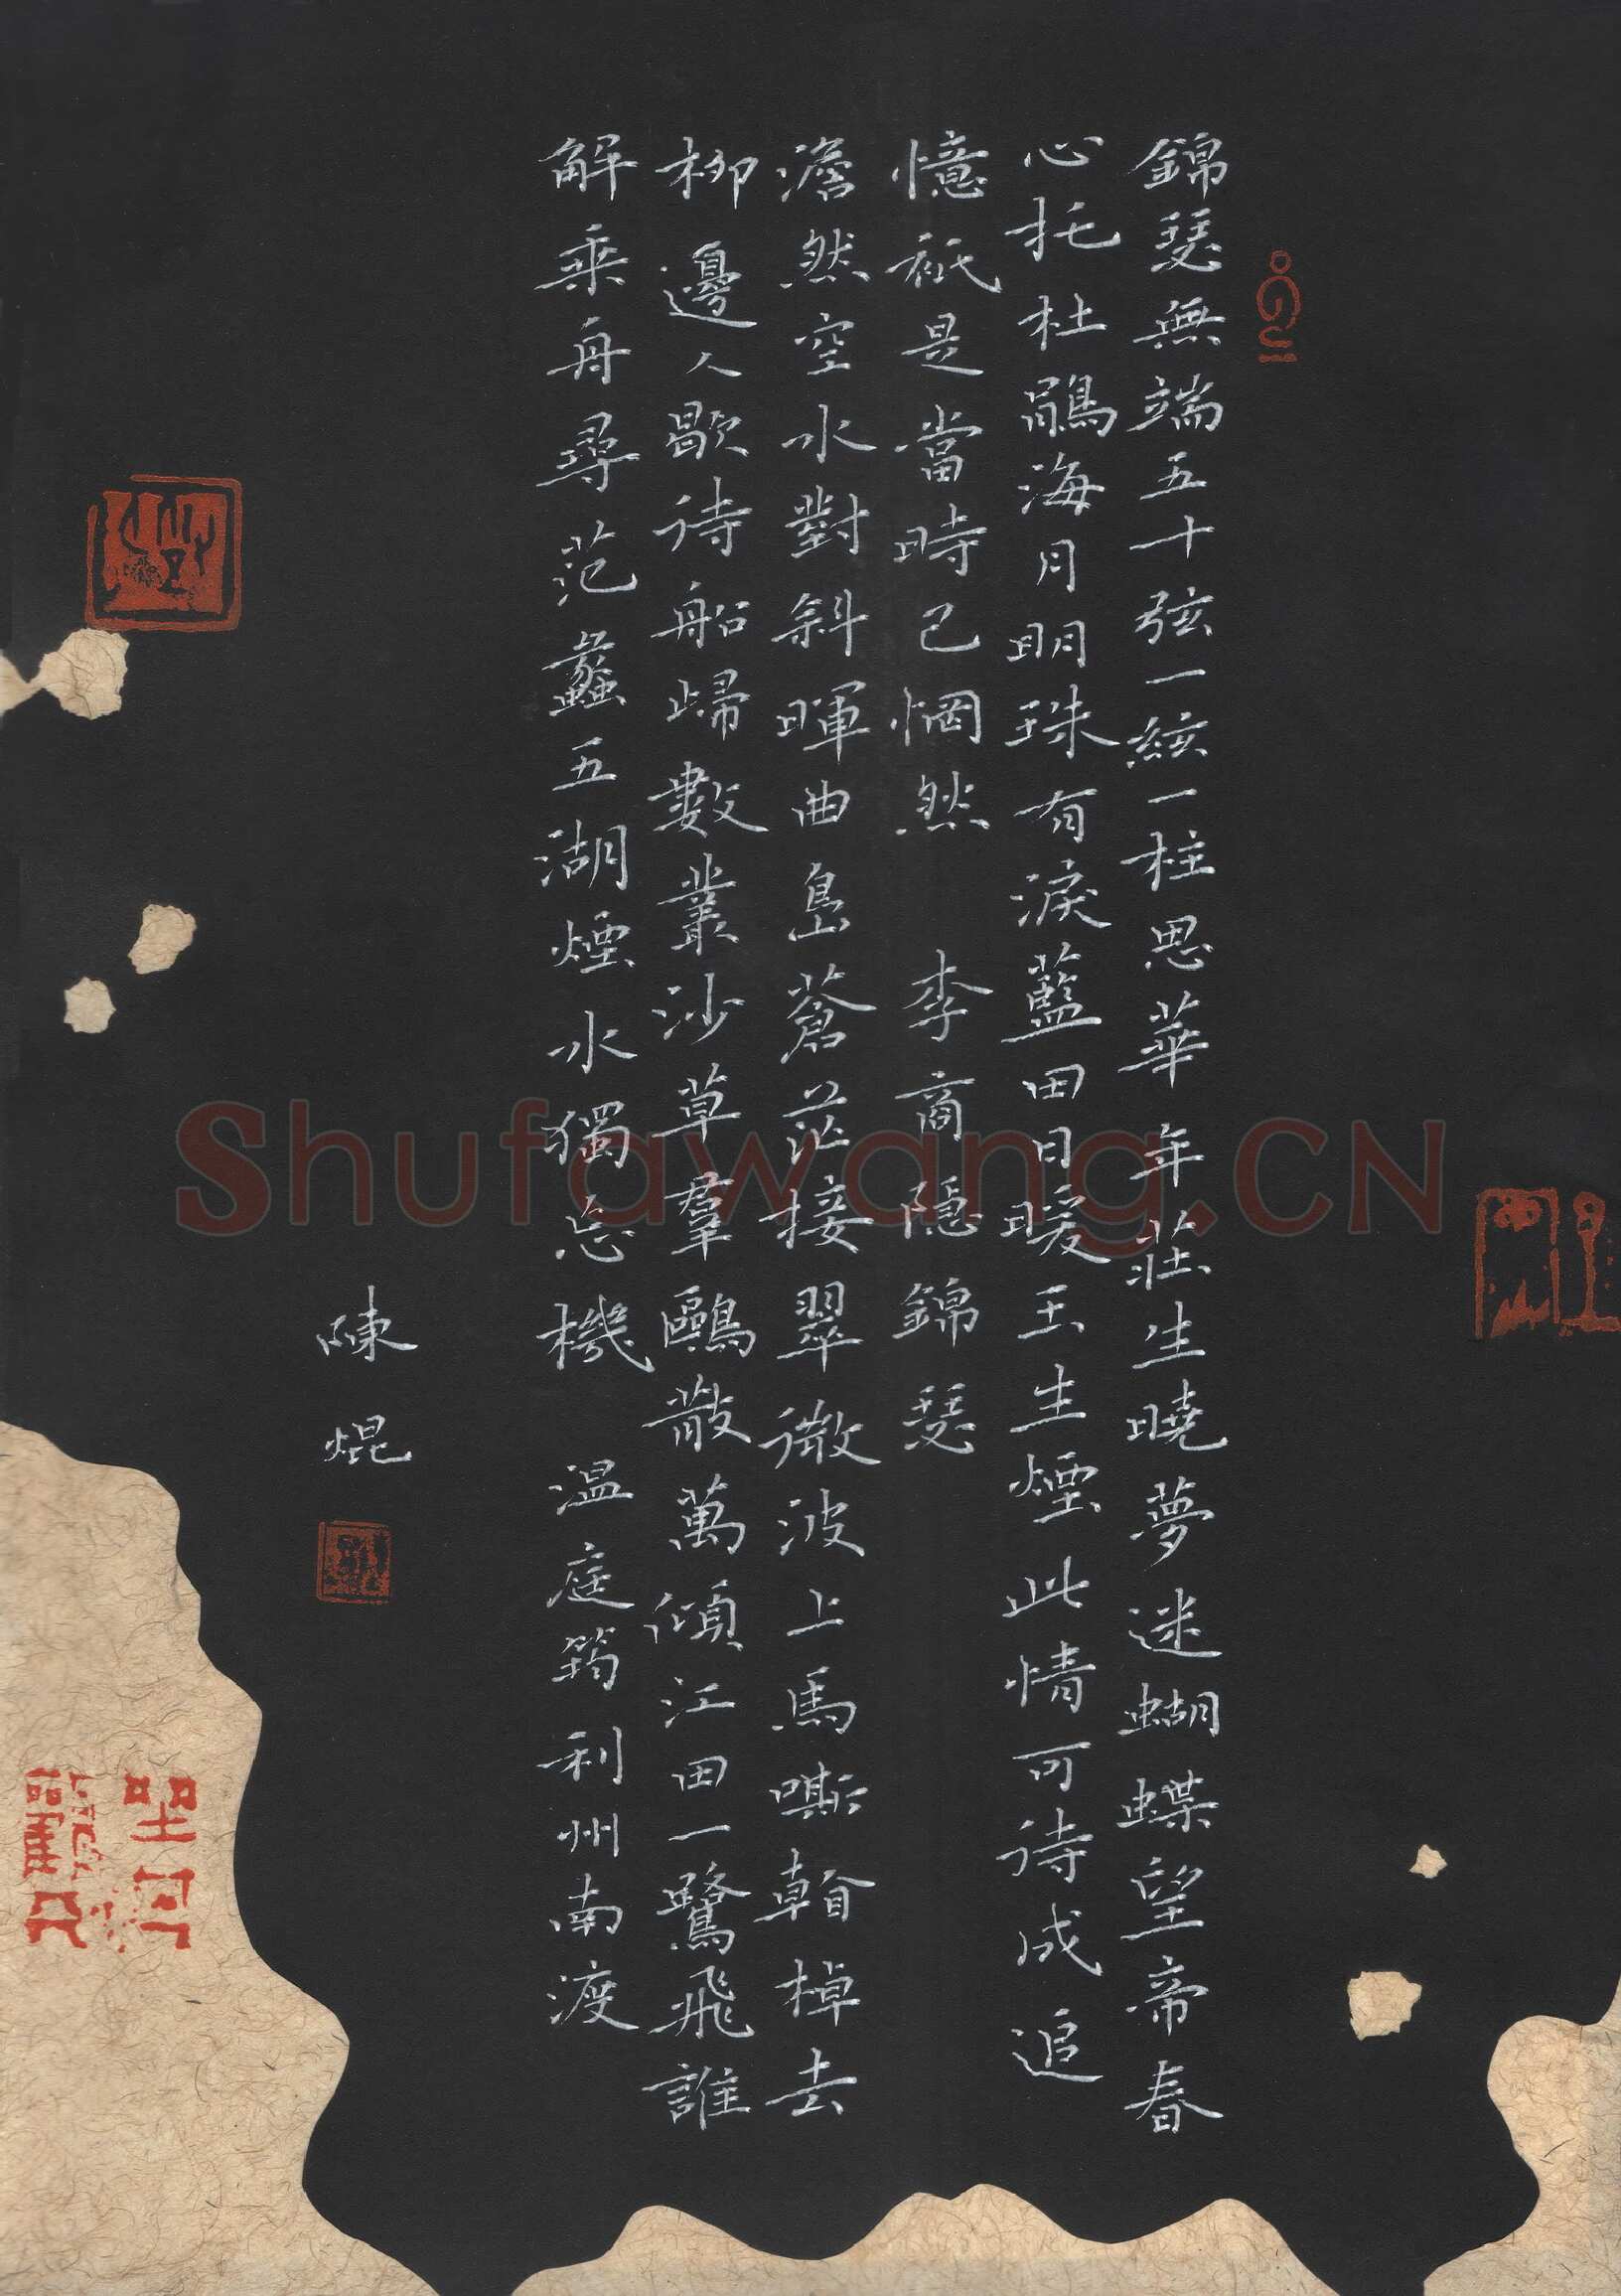 錦瑟無端五十弦一絃一柱思華年莊生曉夢迷蝴蝶望帝春
心托杜鵑海月明珠有淚藍田日暖玉生煙此情可待成追
憶祇是當時已惘然 李商隱錦瑟
澹然空水對斜暉曲島蒼茫接翠微波上馬嘶看棹去
柳邊人歇待船歸數叢沙草羣鷗散萬傾江田一鷺飛誰
解乘舟尋范蠡五湖煙水獨忘機 溫庭筠利州南渡
陳焜
Shufawang.CN